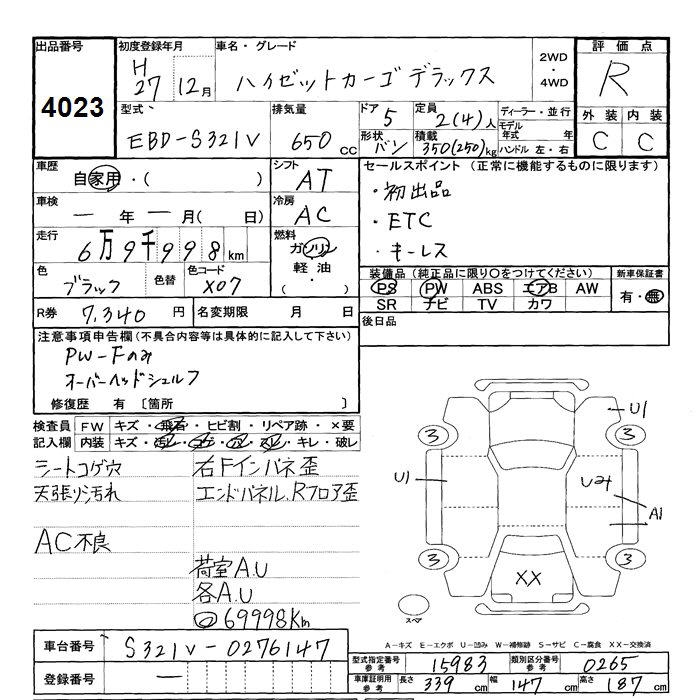 出品番号
4023
初度登録年月
H27 12月
車名・グレード
ハイゼットカーゴ デラックス
2WD・4WD
評価点
R
外装 内装
C C
型式
EBD-S321V
排気量
650 cc
ドア
5
形状
バン
定員
2(4)人
積載
350(250)kg
ディーラー・並行
モデル年式 年
ハンドル 左・右
車歴
自家用・( )
シフト
AT
車検
一 年 一 月( 日)
冷房
AC
走行
6万9千998km
燃料
ガソリン
軽油
・( )
色
ブラック
色替
色コード
X07
R券
7,340円
名変期限 月 日
セールスポイント(正常に機能するものに限ります)
・初出品
・ETC
・キーレス
装備品(純正品に限り○をつけてください)
PS PW ABS エアB AW
SR ナビ TV カワ
新車保証書
有・無
後日品
注意事項申告欄(不具合内容等は具体的に記入して下さい)
PW-Fのみ
オーバーヘッドシェルフ
修復歴 有 [箇所 ]
検査員記入欄
FW キズ・飛石・ヒビ割・リペア跡・×要
内装 キズ・・・・・キレ・破レ
シートコゲ穴
天張り汚れ
AC不良
右Fインパネ歪
エンドパネル、Rフロア歪
荷室A.U
各A.U
69998Km
3 3 3 3
U1
U1
Uみ
A1
XX
スペア
A-キズ E-エクボ U-凹み W-補修跡 S-サビ C-腐食 XX-交換済
車台番号
S321V-0276147
登録番号
一
型式指定番号 参考
15983
類別区分番号 参考
0265
車庫証明用 参考
長さ 339cm 幅 147cm 高さ 187cm